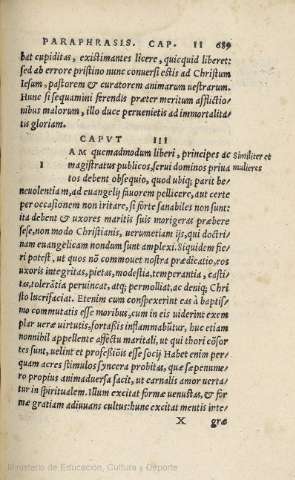 PARAPHRASIS. CAP. II 689
bat cupiditas, existimantes licere, quicquid liberet:
sed ab errore pristino nunc conuersi estis ad Christum
Iesum, pastorem & curatorem animarum uestrarum.
Hunc si sequamini ferendis præter meritum afflictio/
nibus malorum, illo duce peruenietis ad immortalita/
tis gloriam.
CAPVT III
I
AM quemadmodum liberi, principes ac
magistratus publicos, serui dominos priua
tos debent obsequio, quod ubiq; parit be
Similiter et
mulieres
neuolentiam, ad euangelij fauorem pellicere, aut certe
per occasionem non irritare, si forte sanabiles non sunt:
ita debent & uxores maritis suis morigeras præbere
sese, non modo Christianis, uerumetiam ijs, qui doctri
nam euangelicam nondum sunt amplexi. Siquidem fie/
ri potest, ut quos nõ commouet nostra prædicatio, eos
uxoris integritas, pietas, modestia, temperantia, casti/
tas, tolerãtia peruincat, atq; permolliat, ac deniq; Chri
sto lucrifaciat. Etenim cum conspexerint eas à baptis/
mo commutatis esse moribus, cum in eis uiderint exem
plar ueræ uirtutis, fortaßis inflammabũtur, huc etiam
nonnihil appellente affectu maritali, ut qui thori cõsor
tes sunt, uelint et profeßiõis esse socij Habet enim per/
quam acres stimulos syncera probitas, quæ sæpenume/
ro propius animaduersa facit, ut carnalis amor uerta/
tur in spiritualem. Illum excitat formæ uenustas, & for
mæ gratiam adiuuans cultus: hunc excitat mentis inte/
X græ
Ministerio de Educación, Cultura y Deporte